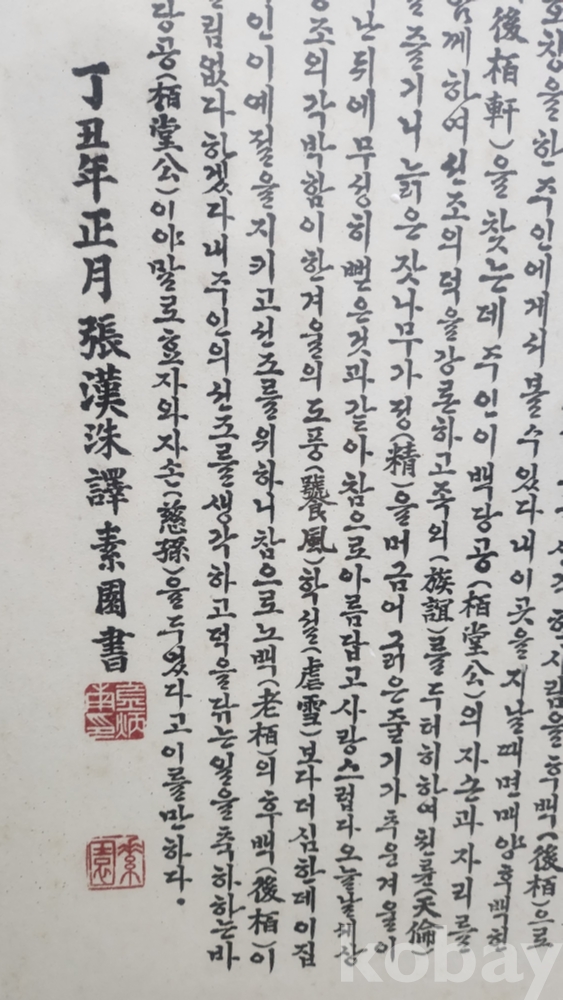 호창을한주인에게서볼수있다내이곳을지날때면매양후백헌
(後栢軒)을찾는데주인이백당공(栢堂公)의자손과자리를
함께하여선조의덕을강론하고족의(族誼)를두터히하여천륜(天倫)
을즐기니늙은잣나무가정(精)을머금어굵은줄기가추운겨울이
난뒤에무성히뻗은것과같아참으로아름답고사랑스럽다오늘날세상
풍조의각박함이한겨울의도풍(饕風)학설(虐雪)보다더심한데이집
인이예절을지키고선조를위하니참으로노백(老栢)의후백(後栢)이
틀림없다하겠다내주인의선조를생각하고덕을닦는일을축하하는바
당공(栢堂公)이야말로효자와자손(慈孫)을두었다고이를만하다.
丁丑年正月 張漢洙譯 素園書
素園
kobay